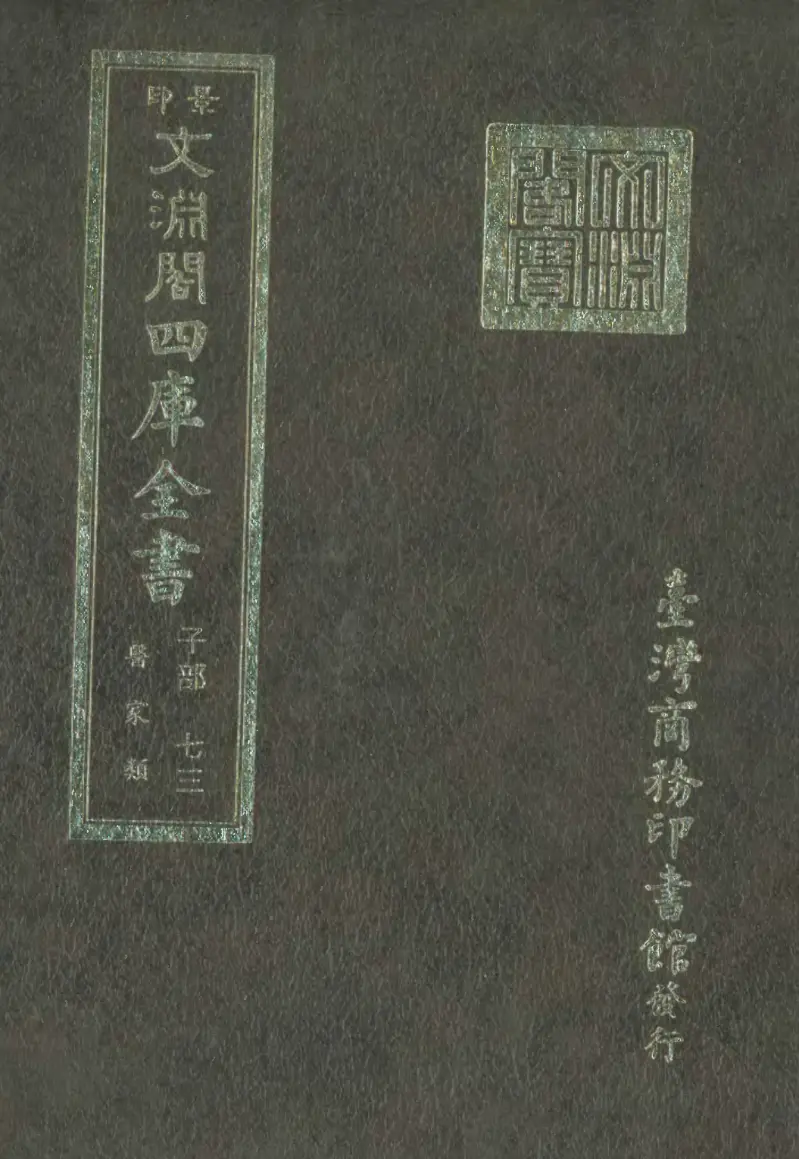 景印
文淵閣四庫全書
子部 七三
醫家類
文淵
閣寶
臺灣商務印書館發行